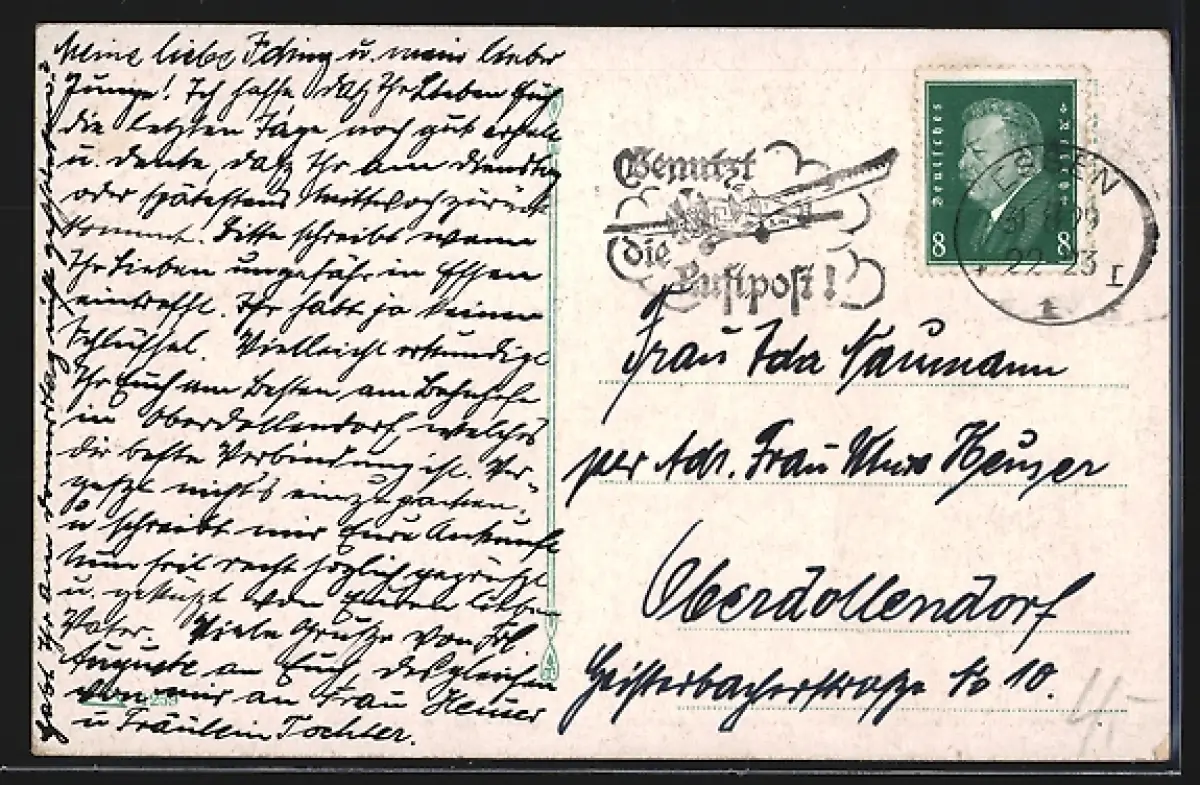 Meine liebe u. mein lieber
Junge! Ich hoffe, daß Ihr Lieben Euch
die letzten Tage noch gut erholt
u. denke, daß Ihr am Dienstag
oder spätestens Mittwoch zurück
kommt. Bitte schreibt wann
Ihr Lieben ungefähr in Essen
eintrefft. Ihr habt ja keinen
Schlüssel. Vielleicht erkundigt
Ihr Euch am Besten am Bahnhofe
in Oberdollendorf, welches
die beste Verbindung ist. Ver-
geßt nichts einzupacken,
u schreibt mir Eure Ankunft
Nun seid recht herzlich gegrüßt
u. geküßt von Eurem lieben
Vater. Viele Grüße von Frl
Auguste an Euch, desgleichen
von mir an Frau Heuser
u Fräulein Tochter.
Habt Ihr am Donnerstag
Benutzt
die
Luftpost!
Deutsches Reich
8 8
ESSEN
29
22-23
I
Frau Ida Naumann
per Adr. Frau Heuser
Oberdollendorf
Heisterbacherstraße No 10.